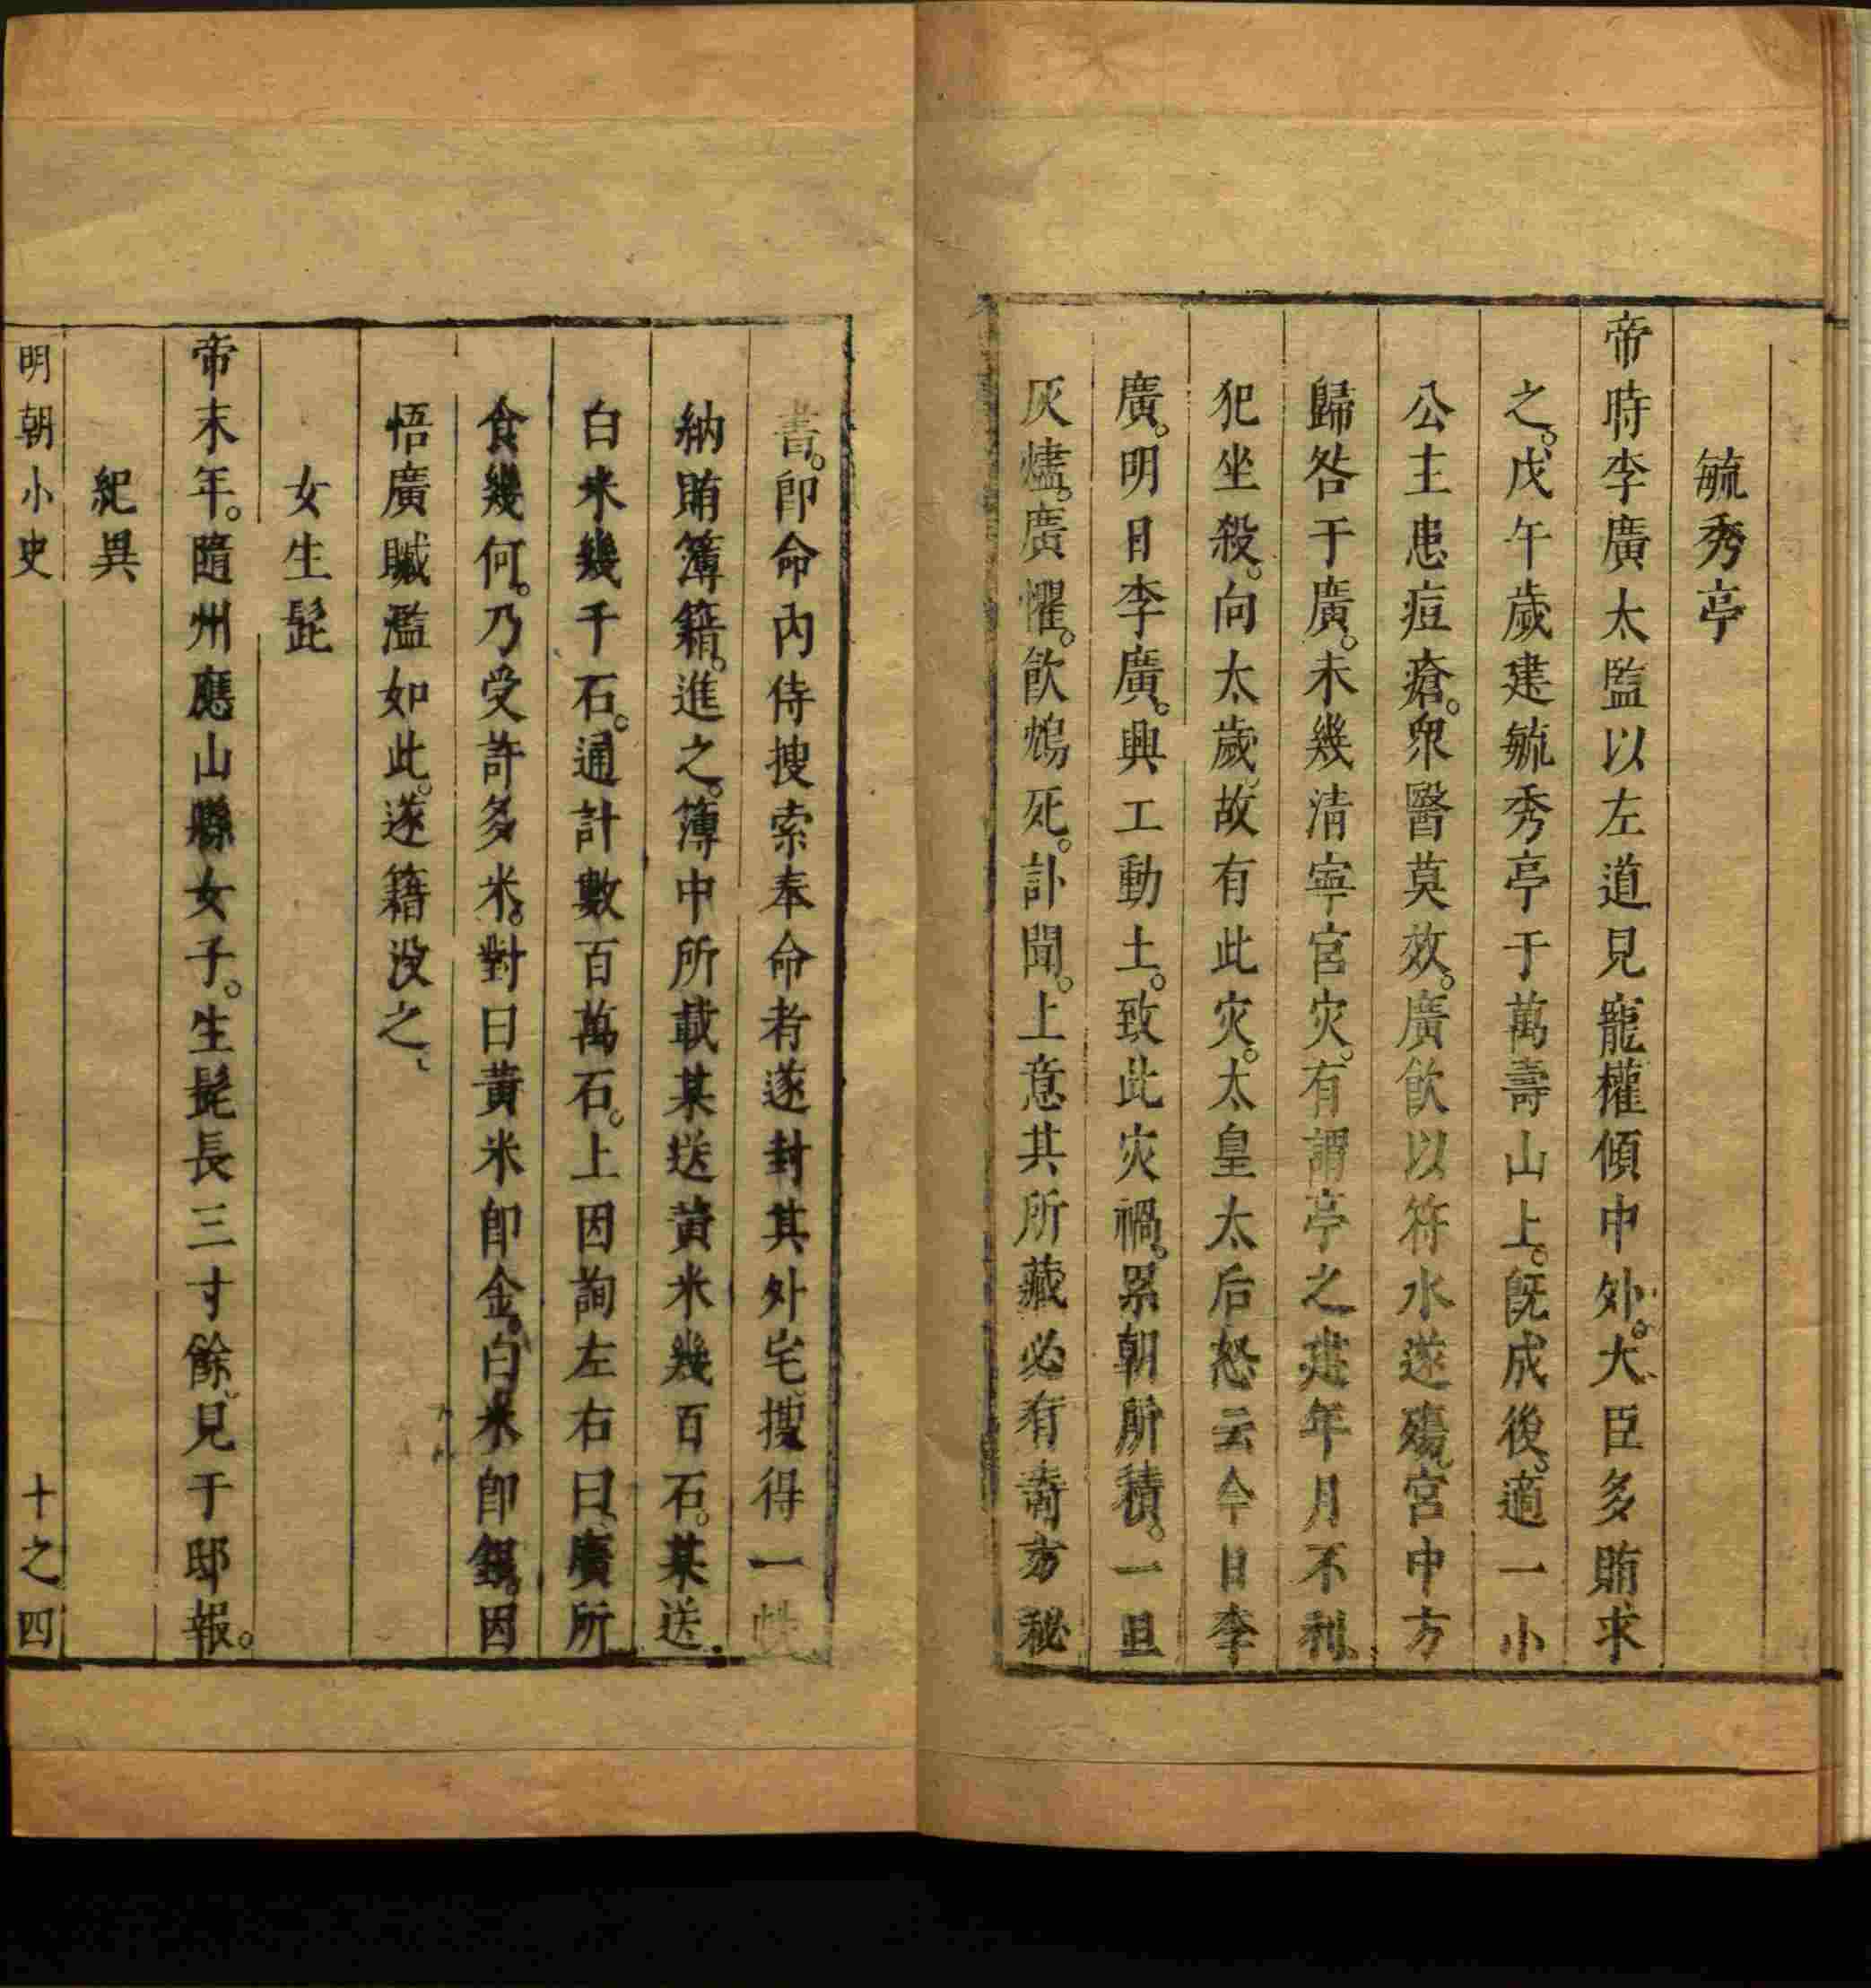 毓秀亭
帝時李廣太監以左道見寵權傾中外。大臣多賄求
之。戊午歲建毓秀亭于萬壽山上。旣成後、適一小
公主患痘瘡。衆醫莫效。廣飮以符水遂殤、宮中方
歸咎于廣。未幾清寧宮灾。有謂亭之建年月不利、
犯坐殺。向太歲、故有此灾。太皇太后怒云今日李
廣。明日李廣。興工動土。致此灾禍。累朝所積。一旦
灰燼。廣懼。飮鴆死。訃聞。上意其所藏必有奇方秘
書。卽命內侍搜索奉命者遂封其外宅搜得一帙
納賄簿籍。進之。簿中所載某送黃米幾百石。某送
白米幾千石。通計數百萬石。上因詢左右曰、廣所
食幾何。乃受許多米。對曰黃米卽金。白米卽銀。因
悟廣贓濫如此。遂籍没之、
女生髭
帝末年。隨州應山縣女子。生髭長三寸餘、見于邸報。
紀異
明朝小史 十之四